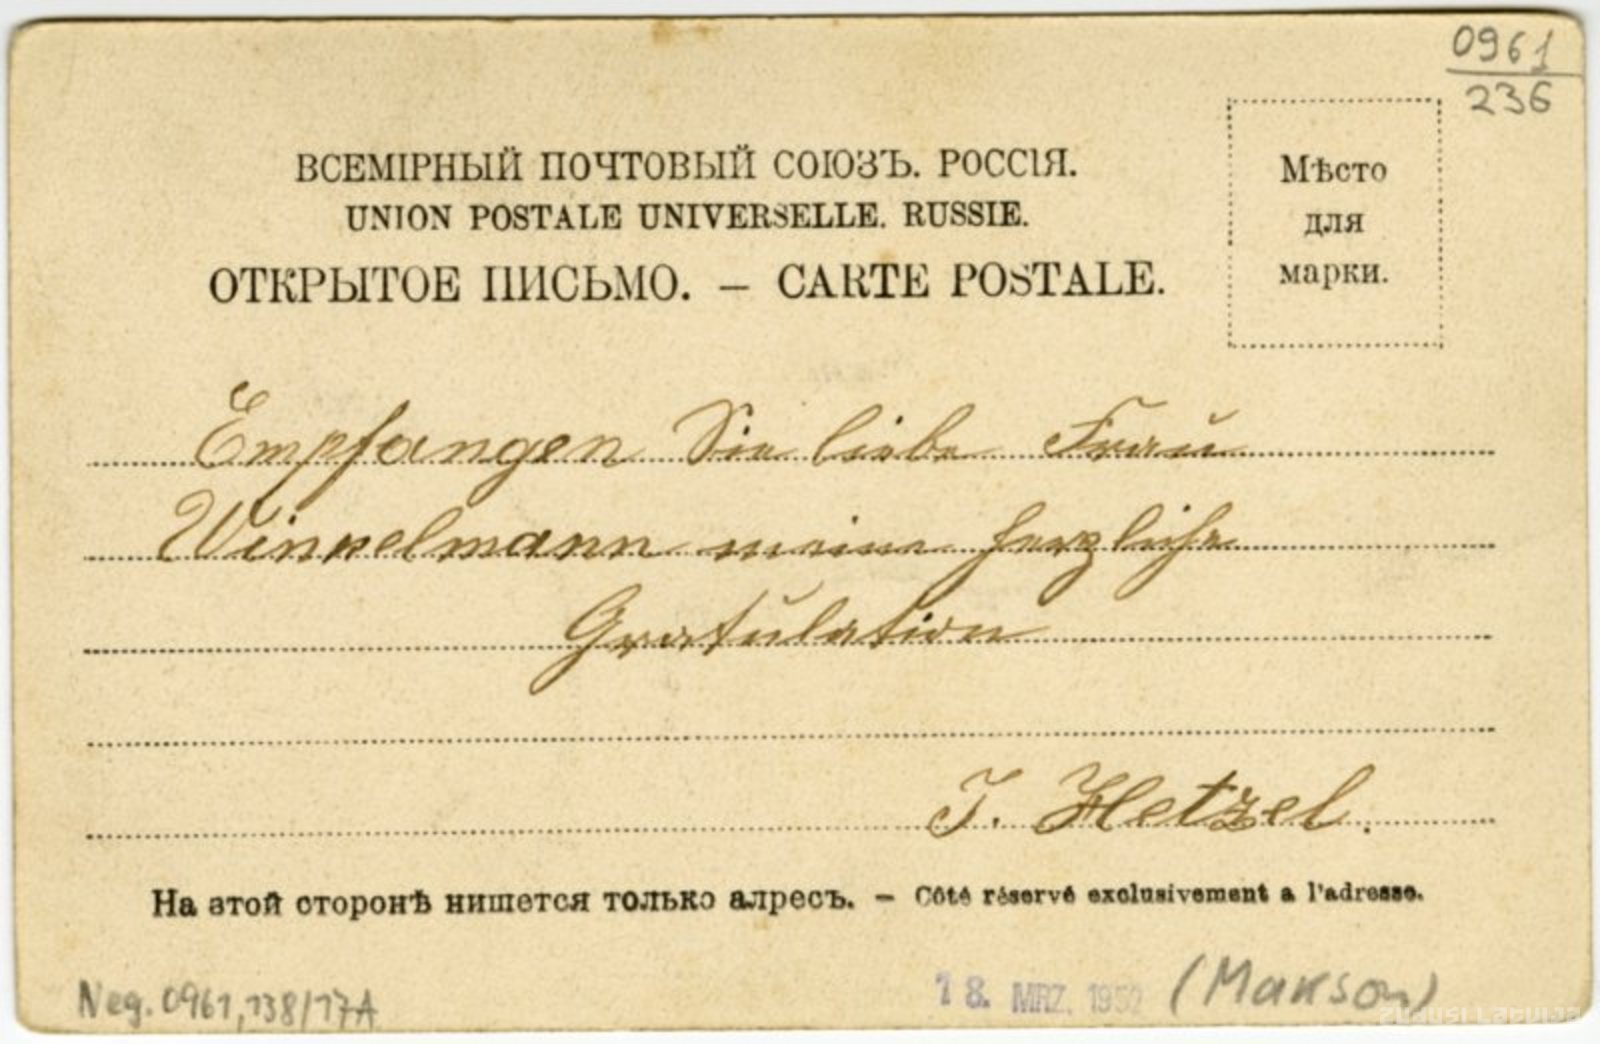 0961
236
ВСЕМІРНЫЙ ПОЧТОВЫЙ СОЮЗЪ. РОССІЯ.
UNION POSTALE UNIVERSELLE. RUSSIE.
ОТКРЫТОЕ ПИСЬМО. – CARTE POSTALE.
Мѣсто
для
марки.
Empfangen Sie liebe Frau
Winkelmann meine herzliche
Gratulation
J. Hetzel.
На этой сторонѣ пишется только адресъ. – Côté réservé exclusivement a l'adresse.
Neg. 0961, 138/17A
18. MRZ. 1952
(Makson)
ZUDUSI LATVIJA